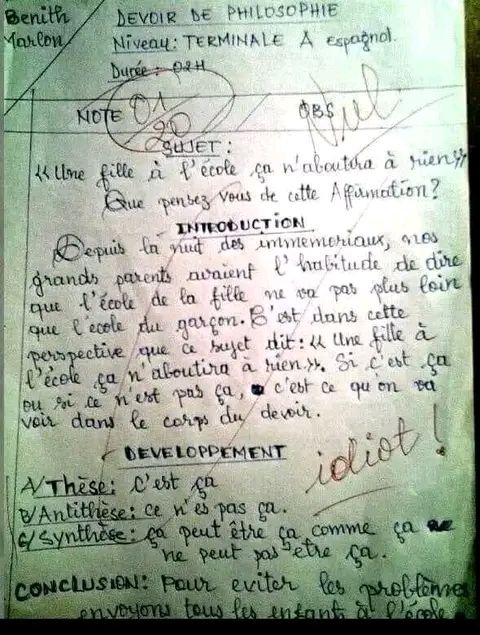 Benith
Marlon
DEVOIR DE PHILOSOPHIE
Niveau: TERMINALE A espagnol.
Durée: 02H
NOTE 01/20
OBS Nul
SUJET:
"Une fille à l'école ça n'aboutira à rien"
Que pensez vous de cette Affirmation?
INTRODUCTION
Depuis la nuit des immemoriaux, nos
grands parents avaient l'habitude de dire
que l'école de la fille ne va pas plus loin
que l'école du garçon. C'est dans cette
perspective que ce sujet dit: "Une fille à
l'école ça n'aboutira à rien". Si c'est ça
ou si ce n'est pas ça, c'est ce qu'on va
voir dans le corps du devoir.
- DEVELOPPEMENT
idiot!
A/ Thèse: C'est ça
B/ Antithèse: ce n'es pas ça.
C/ Synthèse: ça peut être ça comme ça
ne peut pas être ça.
CONCLUSION: Pour eviter les problèmes
envoyons tous les enfants à l'école